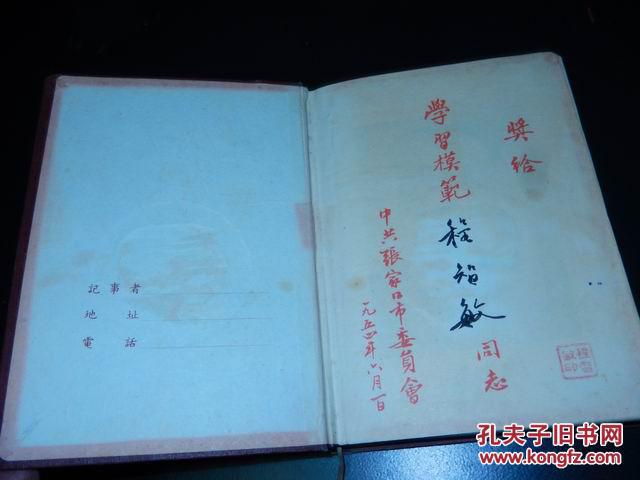 獎給
學習模範程智敏同志
中共張家口市委員會
一九五四年六月一日
記事者
地址
電話
程智
敏印
孔夫子旧书网
www.kongfz.com